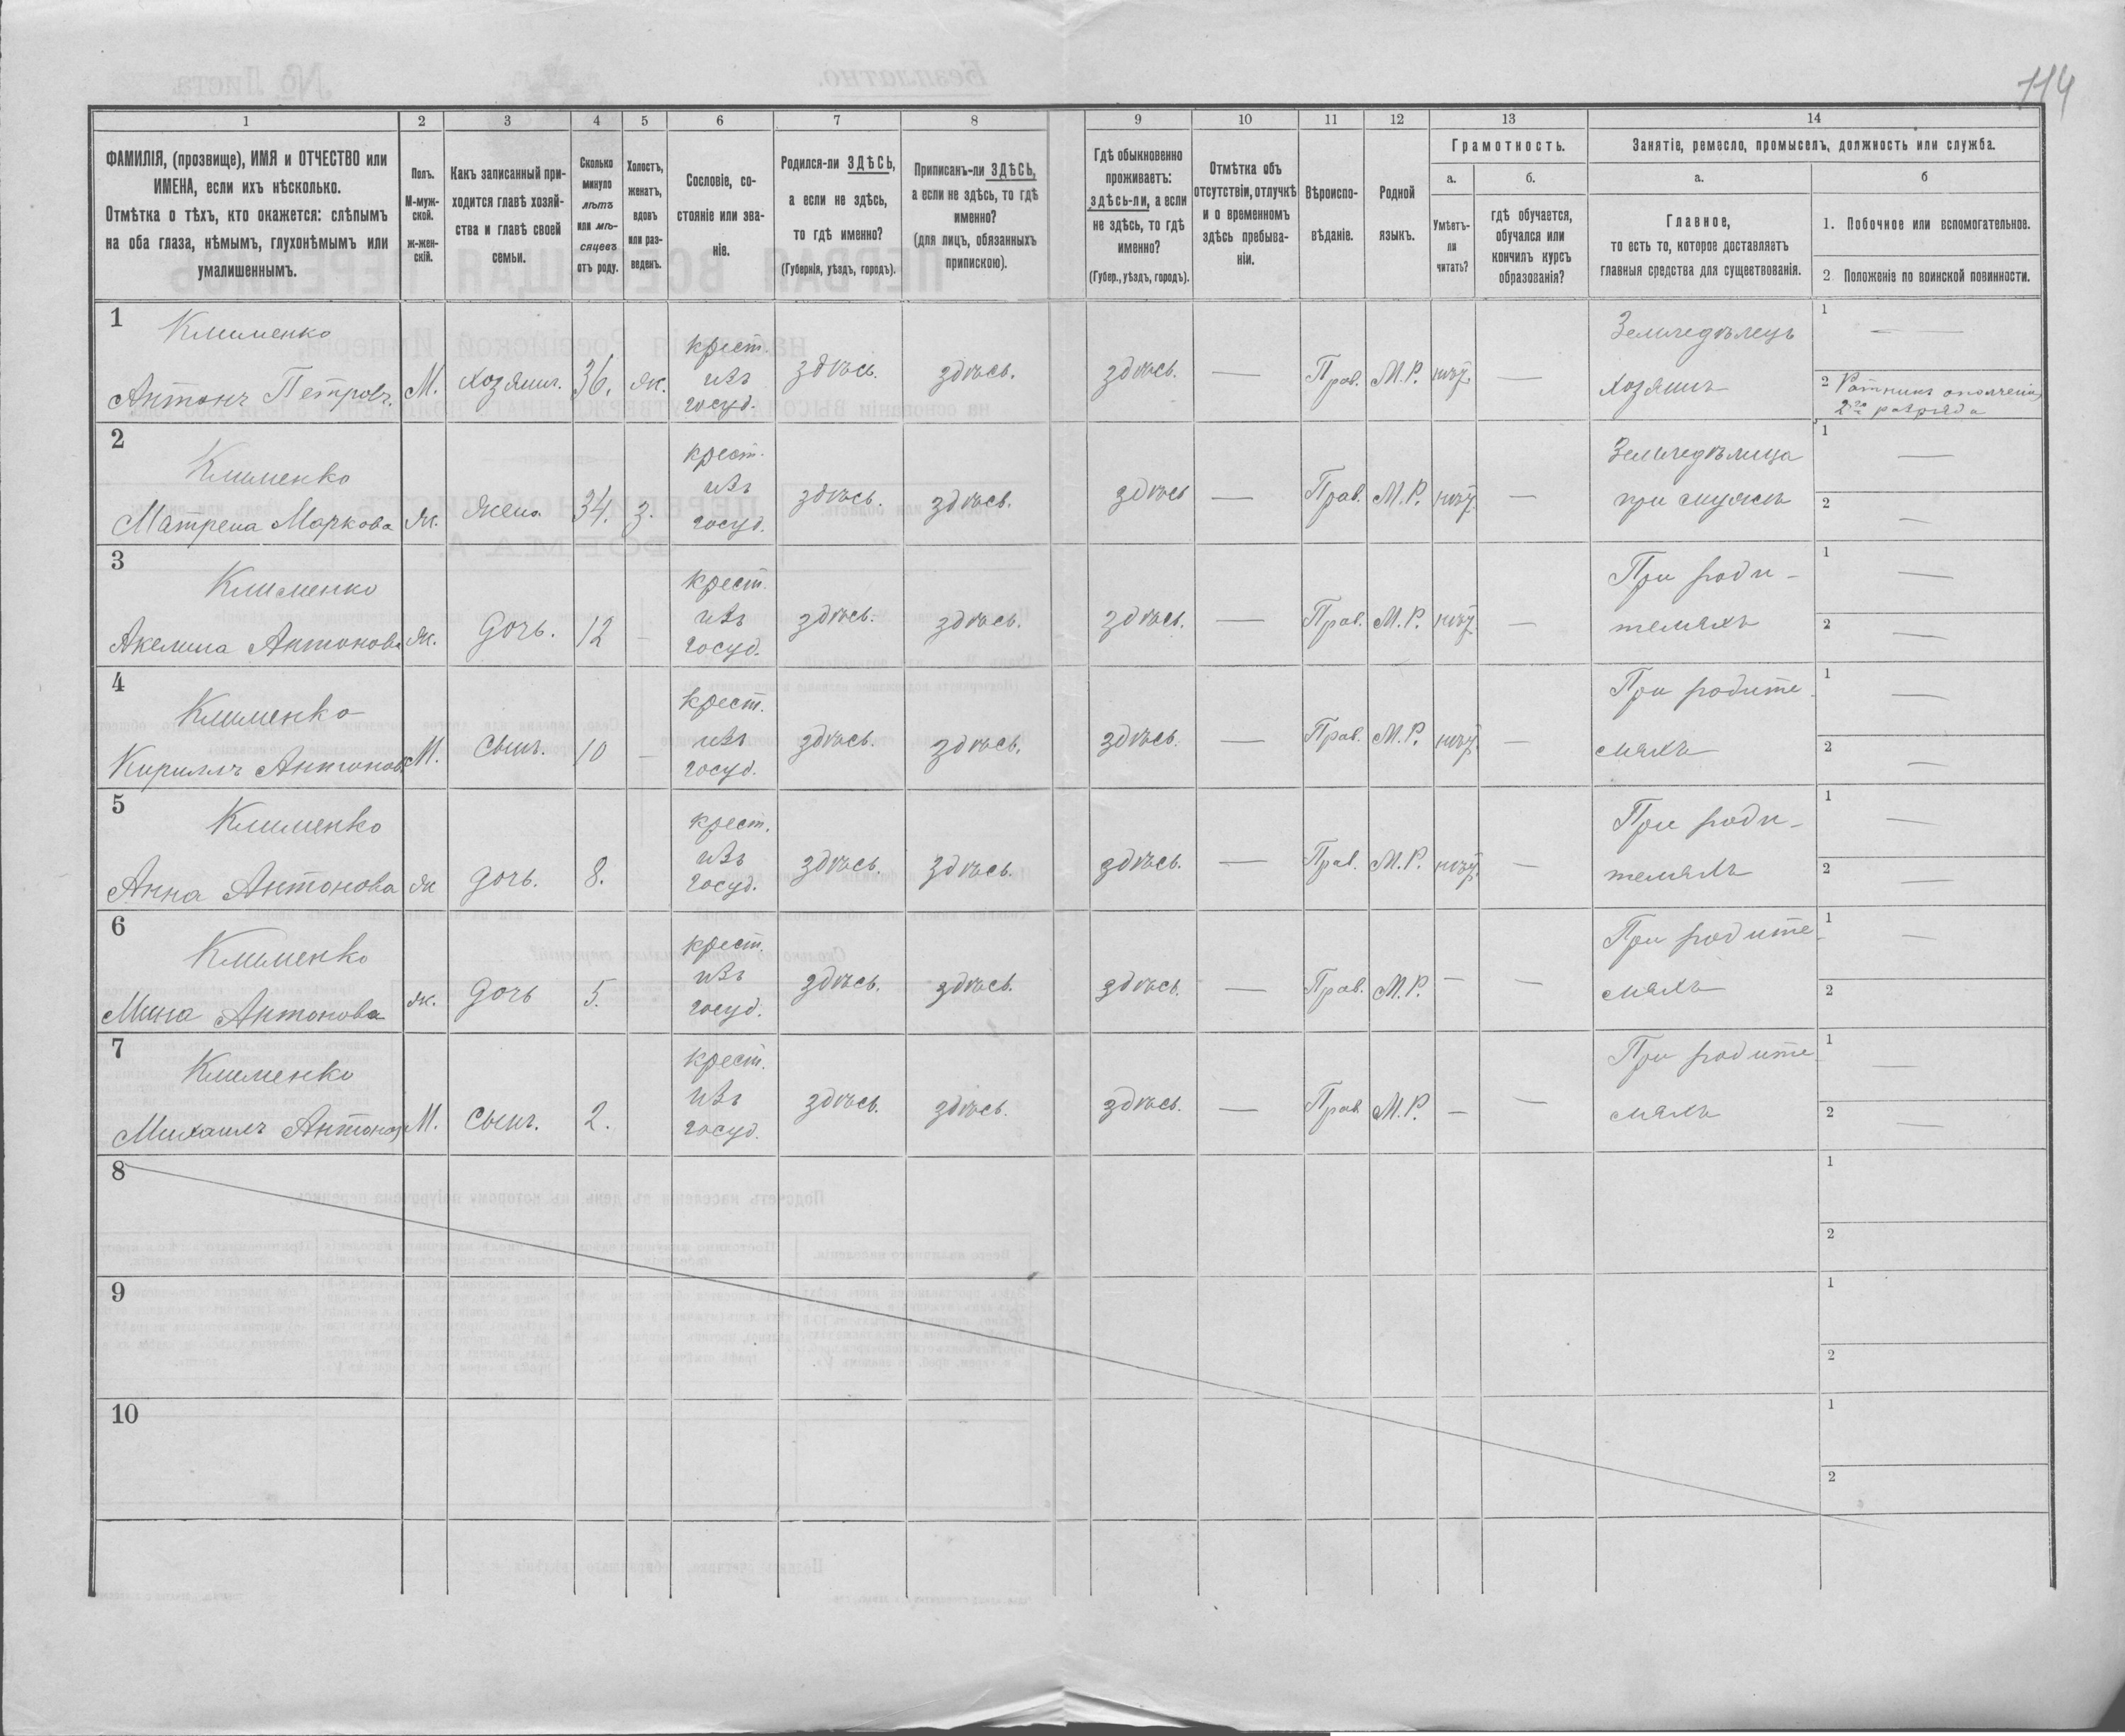 114
1 2 3 4 5 6 7 8 9 10 11 12 13 14
ФАМИЛІЯ, (прозвище), ИМЯ и ОТЧЕСТВО или
ИМЕНА, если ихъ нѣсколько.
Отмѣтка о тѣхъ, кто окажется: слѣпымъ
на оба глаза, нѣмымъ, глухонѣмымъ или
умалишеннымъ.
Полъ.
М-муж-
ской.
Ж-жен-
скій.
Какъ записанный при-
ходится главѣ хозяй-
ства и главѣ своей
семьи.
Сколько
минуло
лѣтъ
или мѣ-
сяцевъ
отъ роду.
Холостъ,
женатъ,
вдовъ
или раз-
веденъ.
Сословіе, со-
стояніе или зва-
ніе.
Родился-ли ЗДѢСЬ,
а если не здѣсь,
то гдѣ именно?
(Губернія, уѣздъ, городъ).
Приписанъ-ли ЗДѢСЬ,
а если не здѣсь, то гдѣ
именно?
(для лицъ, обязанныхъ
припискою).
Гдѣ обыкновенно
проживаетъ:
здѣсь-ли, а если
не здѣсь, то гдѣ
именно?
(Губер., уѣздъ, городъ).
Отмѣтка объ
отсутствіи, отлучкѣ
и о временномъ
здѣсь пребыва-
ніи.
Вѣроиспо-
вѣданіе.
Родной
языкъ.
Грамотность.
а.
Умѣетъ-
ли
читать?
б.
гдѣ обучается,
обучался или
кончилъ курсъ
образованія?
Занятіе, ремесло, промыселъ, должность или служба.
а.
Главное,
то есть то, которое доставляетъ
главныя средства для существованія.
б
1. Побочное или вспомогательное.
2. Положеніе по воинской повинности.
1
Клименко
Антонъ Петровъ
М. хозяинъ. 36. ж.
крест.
изъ
госуд.
здѣсь. здѣсь. здѣсь. — Прав. М.Р. нѣтъ —
Земледѣлецъ
хозяинъ
1 — —
2 Ратникъ ополченія
2го разряда
2
Клименко
Матрена Маркова
ж. жена 34. з.
крест.
изъ
госуд.
здѣсь. здѣсь. здѣсь — Прав. М.Р. нѣтъ —
Земледѣлица
при мужѣ
1 —
2 —
3
Клименко
Акелина Антонова
ж. дочь. 12 —
крест.
изъ
госуд.
здѣсь. здѣсь. здѣсь. — Прав. М.Р. нѣтъ —
При роди-
теляхъ
1 —
2 —
4
Клименко
Кириллъ Антоновъ
М. сынъ. 10 —
крест.
изъ
госуд.
здѣсь. здѣсь. здѣсь. — Прав. М.Р. нѣтъ —
При родите
ляхъ
1 —
2 —
5
Клименко
Анна Антонова
ж дочь. 8.
крест.
изъ
госуд.
здѣсь. здѣсь. здѣсь. — Прав. М.Р. нѣтъ —
При роди-
теляхъ
1 —
2 —
6
Клименко
Мина Антонова
ж. дочь 5.
крест.
изъ
госуд.
здѣсь. здѣсь. здѣсь. — Прав. М.Р. — —
При родите
ляхъ
1 —
2
7
Клименко
Михаилъ Антонов
М. сынъ. 2.
крест.
изъ
госуд.
здѣсь. здѣсь. здѣсь. — Прав М.Р. — —
При родите
ляхъ
1 —
2 —
8
1
2
9
1
2
10
1
2